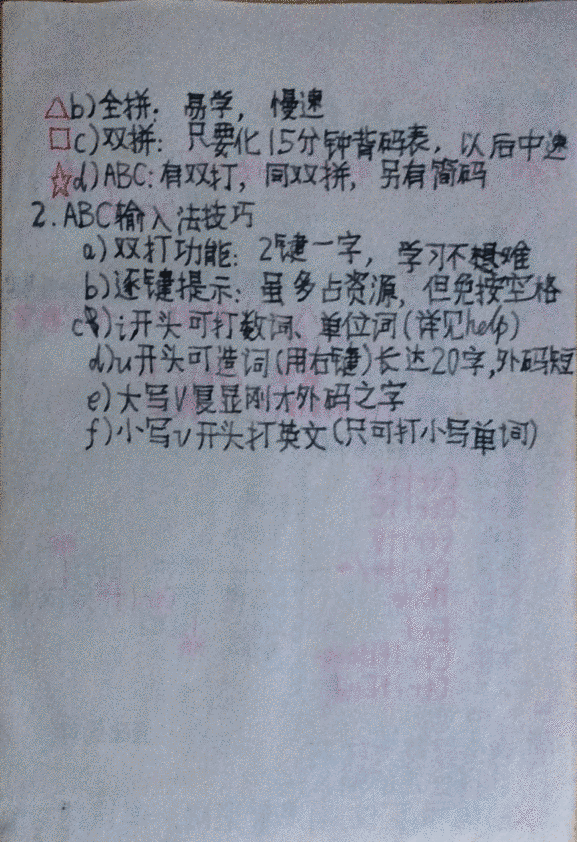 △b)全拼：易学，慢速
□c)双拼：只要化15分钟背码表，以后中速
☆d)ABC：有双打，同双拼，另有简码
2.ABC输入法技巧
a)双打功能：2键一字，学习不想难
b)逐键提示：虽多占资源，但免按空格
c)i开头可打数词、单位词(详见help)
d)u开头可造词(用右键)长达20字,外码短
e)大写V复显刚才外码之字
f)小写v开头打英文(只可打小写单词)